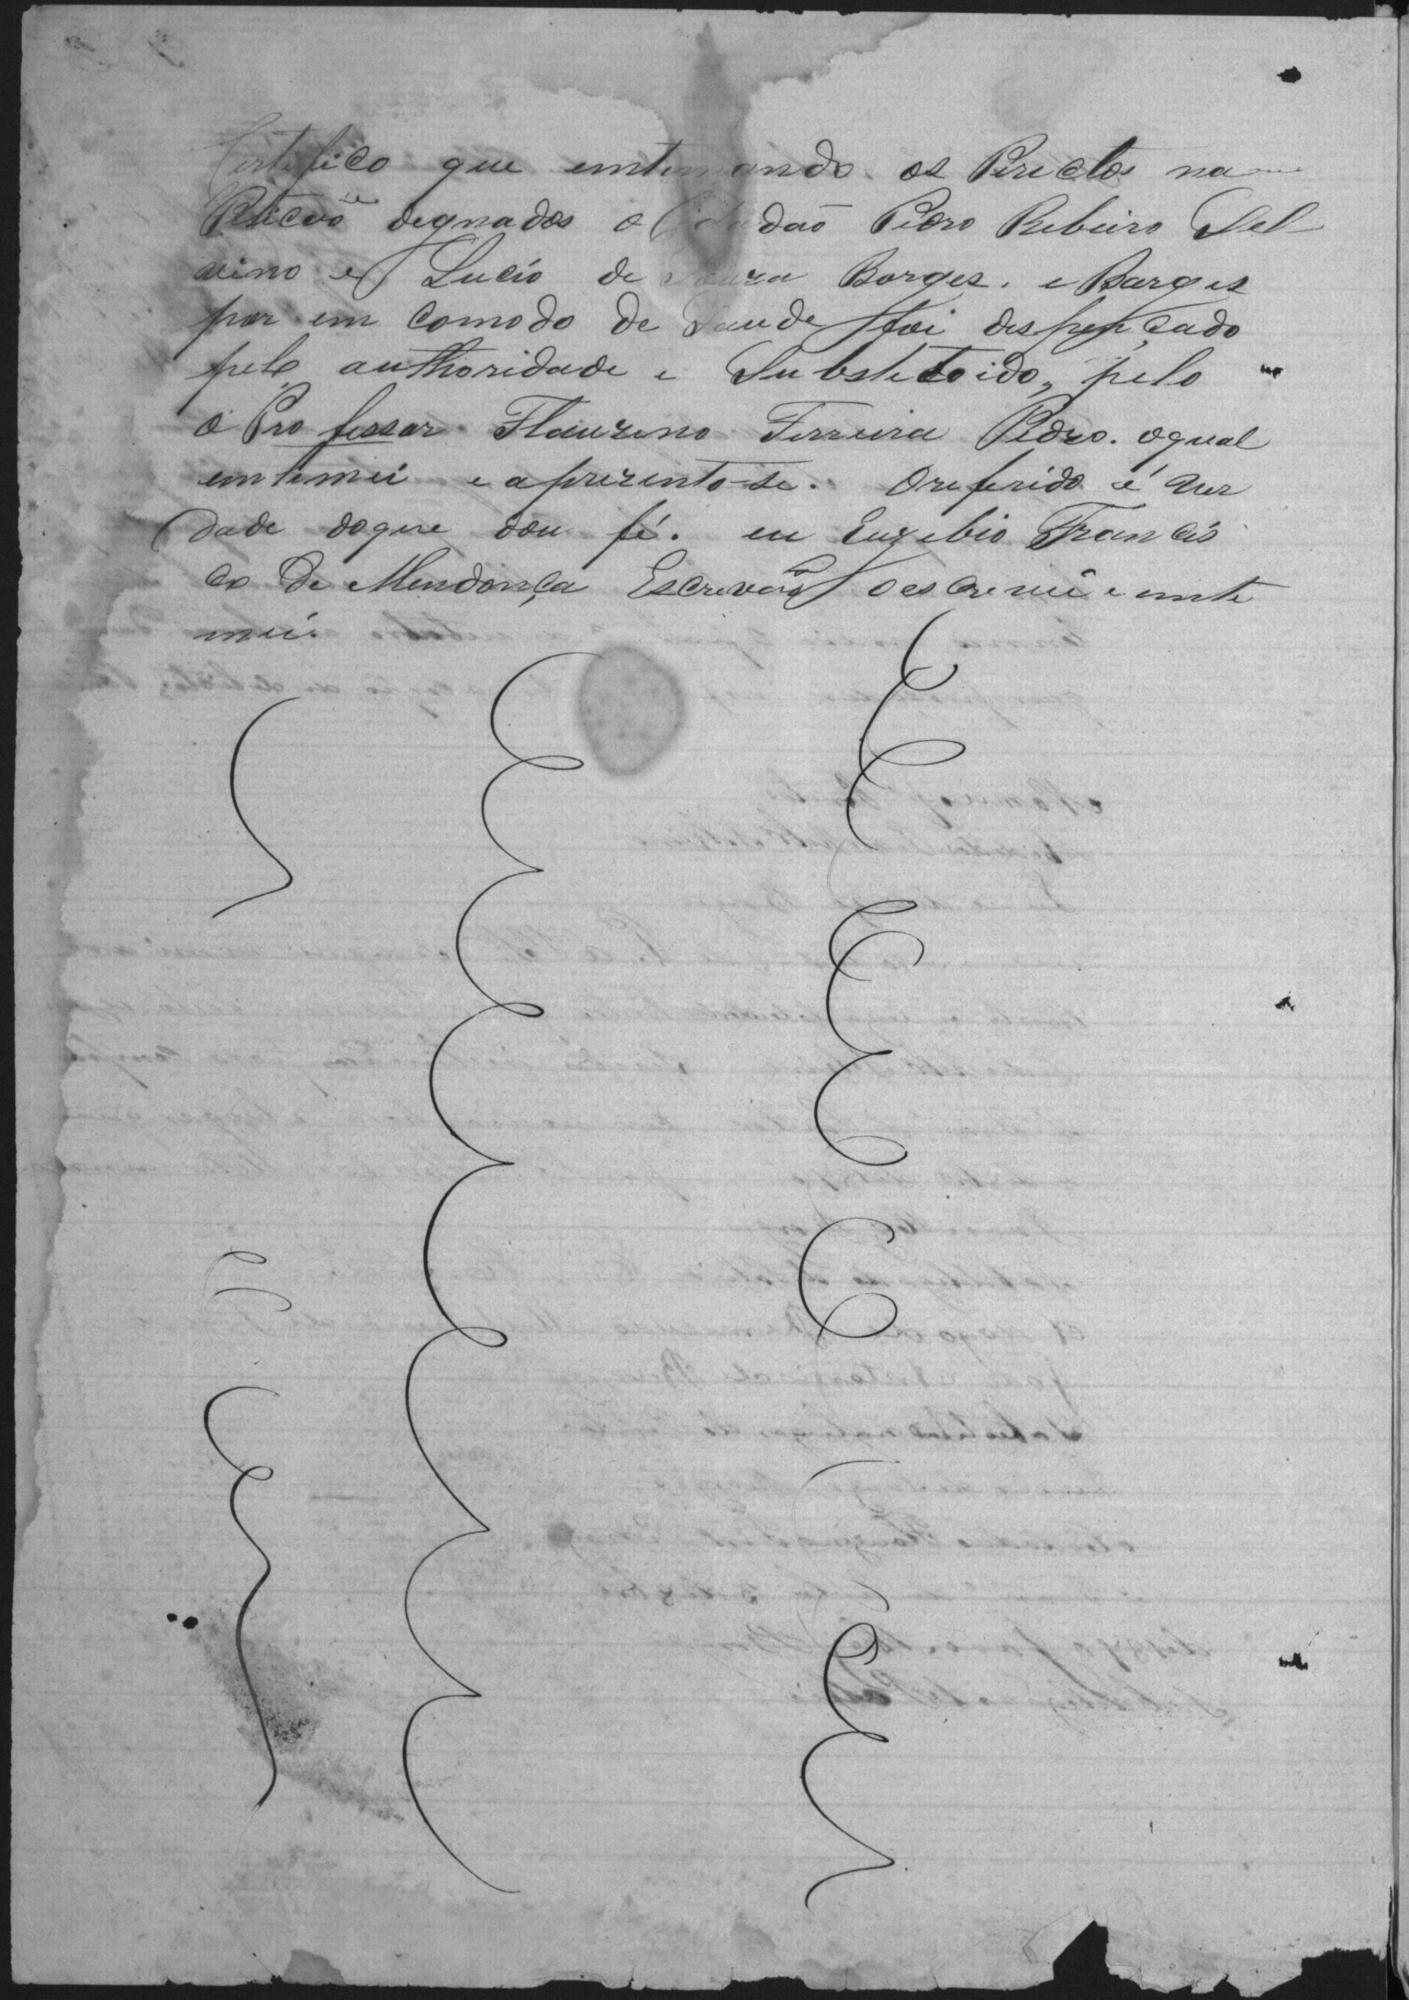 Certifico que emtimando os Perictos na
Peticaõ degnados o Cidadaõ Pedro Rebeiro Sel-
vino e Lucio de Souza Borges. e Borges
por em comodo de Saude foi despençado
pelo authoridade e Substetoido, pelo
o Professor Flauzino Ferreira Pedro. oqual
emtimei e aprezento-se. Oreferido é ver
dade doque dou fé. eu Euzebio Francis
co De Mendonça Escrevaõ o escrevi e emte
mei.